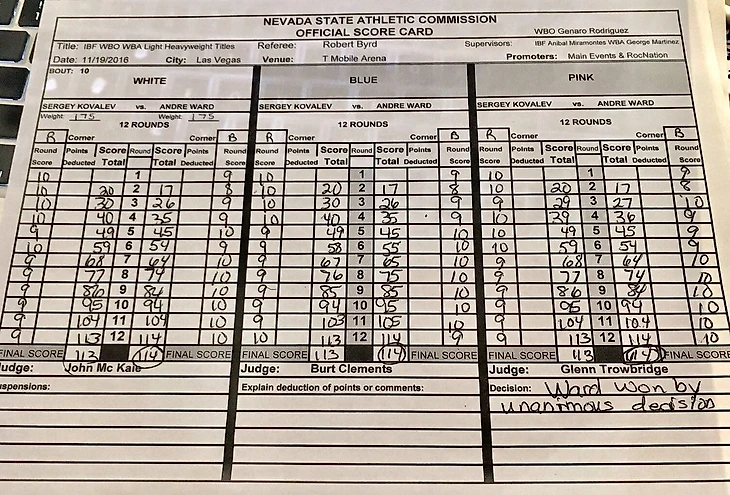 NEVADA STATE ATHLETIC COMMISSION
OFFICIAL SCORE CARD
WBO Genaro Rodriguez
Title: IBF WBO WBA Light Heavyweight Titles Referee: Robert Byrd Supervisors: IBF Anibal Miramontes WBA George Martinez
Date: 11/19/2016 City: Las Vegas Venue: T Mobile Arena Promoters: Main Events & RocNation
BOUT: 10
WHITE BLUE PINK
SERGEY KOVALEV vs. ANDRE WARD SERGEY KOVALEV vs. ANDRE WARD SERGEY KOVALEV vs. ANDRE WARD
Weight: 175 Weight: 175
12 ROUNDS 12 ROUNDS 12 ROUNDS
R Corner Corner B R Corner Corner B R Corner Corner B
Round Points Score Round Score Points Round Round Points Score Round Score Points Round Round Points Score Round Score Points Round
Score Deducted Total Total Deducted Score Score Deducted Total Total Deducted Score Score Deducted Total Total Deducted Score
10 1 9 10 1 9 10 1 9
10 20 2 17 8 10 20 2 17 8 10 20 2 17 8
10 30 3 26 9 10 30 3 26 9 9 29 3 27 10
10 40 4 35 9 10 40 4 35 9 10 39 4 36 9
9 49 5 45 10 9 49 5 45 10 10 49 5 45 9
10 59 6 54 9 9 58 6 55 10 10 59 6 54 9
9 68 7 64 10 9 67 7 65 10 9 68 7 64 10
9 77 8 74 10 9 76 8 75 10 9 77 8 74 10
9 86 9 84 10 9 85 9 85 10 9 86 9 84 10
9 95 10 94 10 9 94 10 95 10 9 95 10 94 10
9 104 11 104 10 9 103 11 105 10 9 104 11 104 10
9 113 12 114 10 10 113 12 114 9 9 113 12 114 10
FINAL SCORE 113 114 FINAL SCORE FINAL SCORE 113 114 FINAL SCORE FINAL SCORE 113 114 FINAL SCORE
Judge: John Mc Kaie Judge: Burt Clements Judge: Glenn Trowbridge
uspensions: Explain deduction of points or comments: Decision: Ward won by
unanimous decision